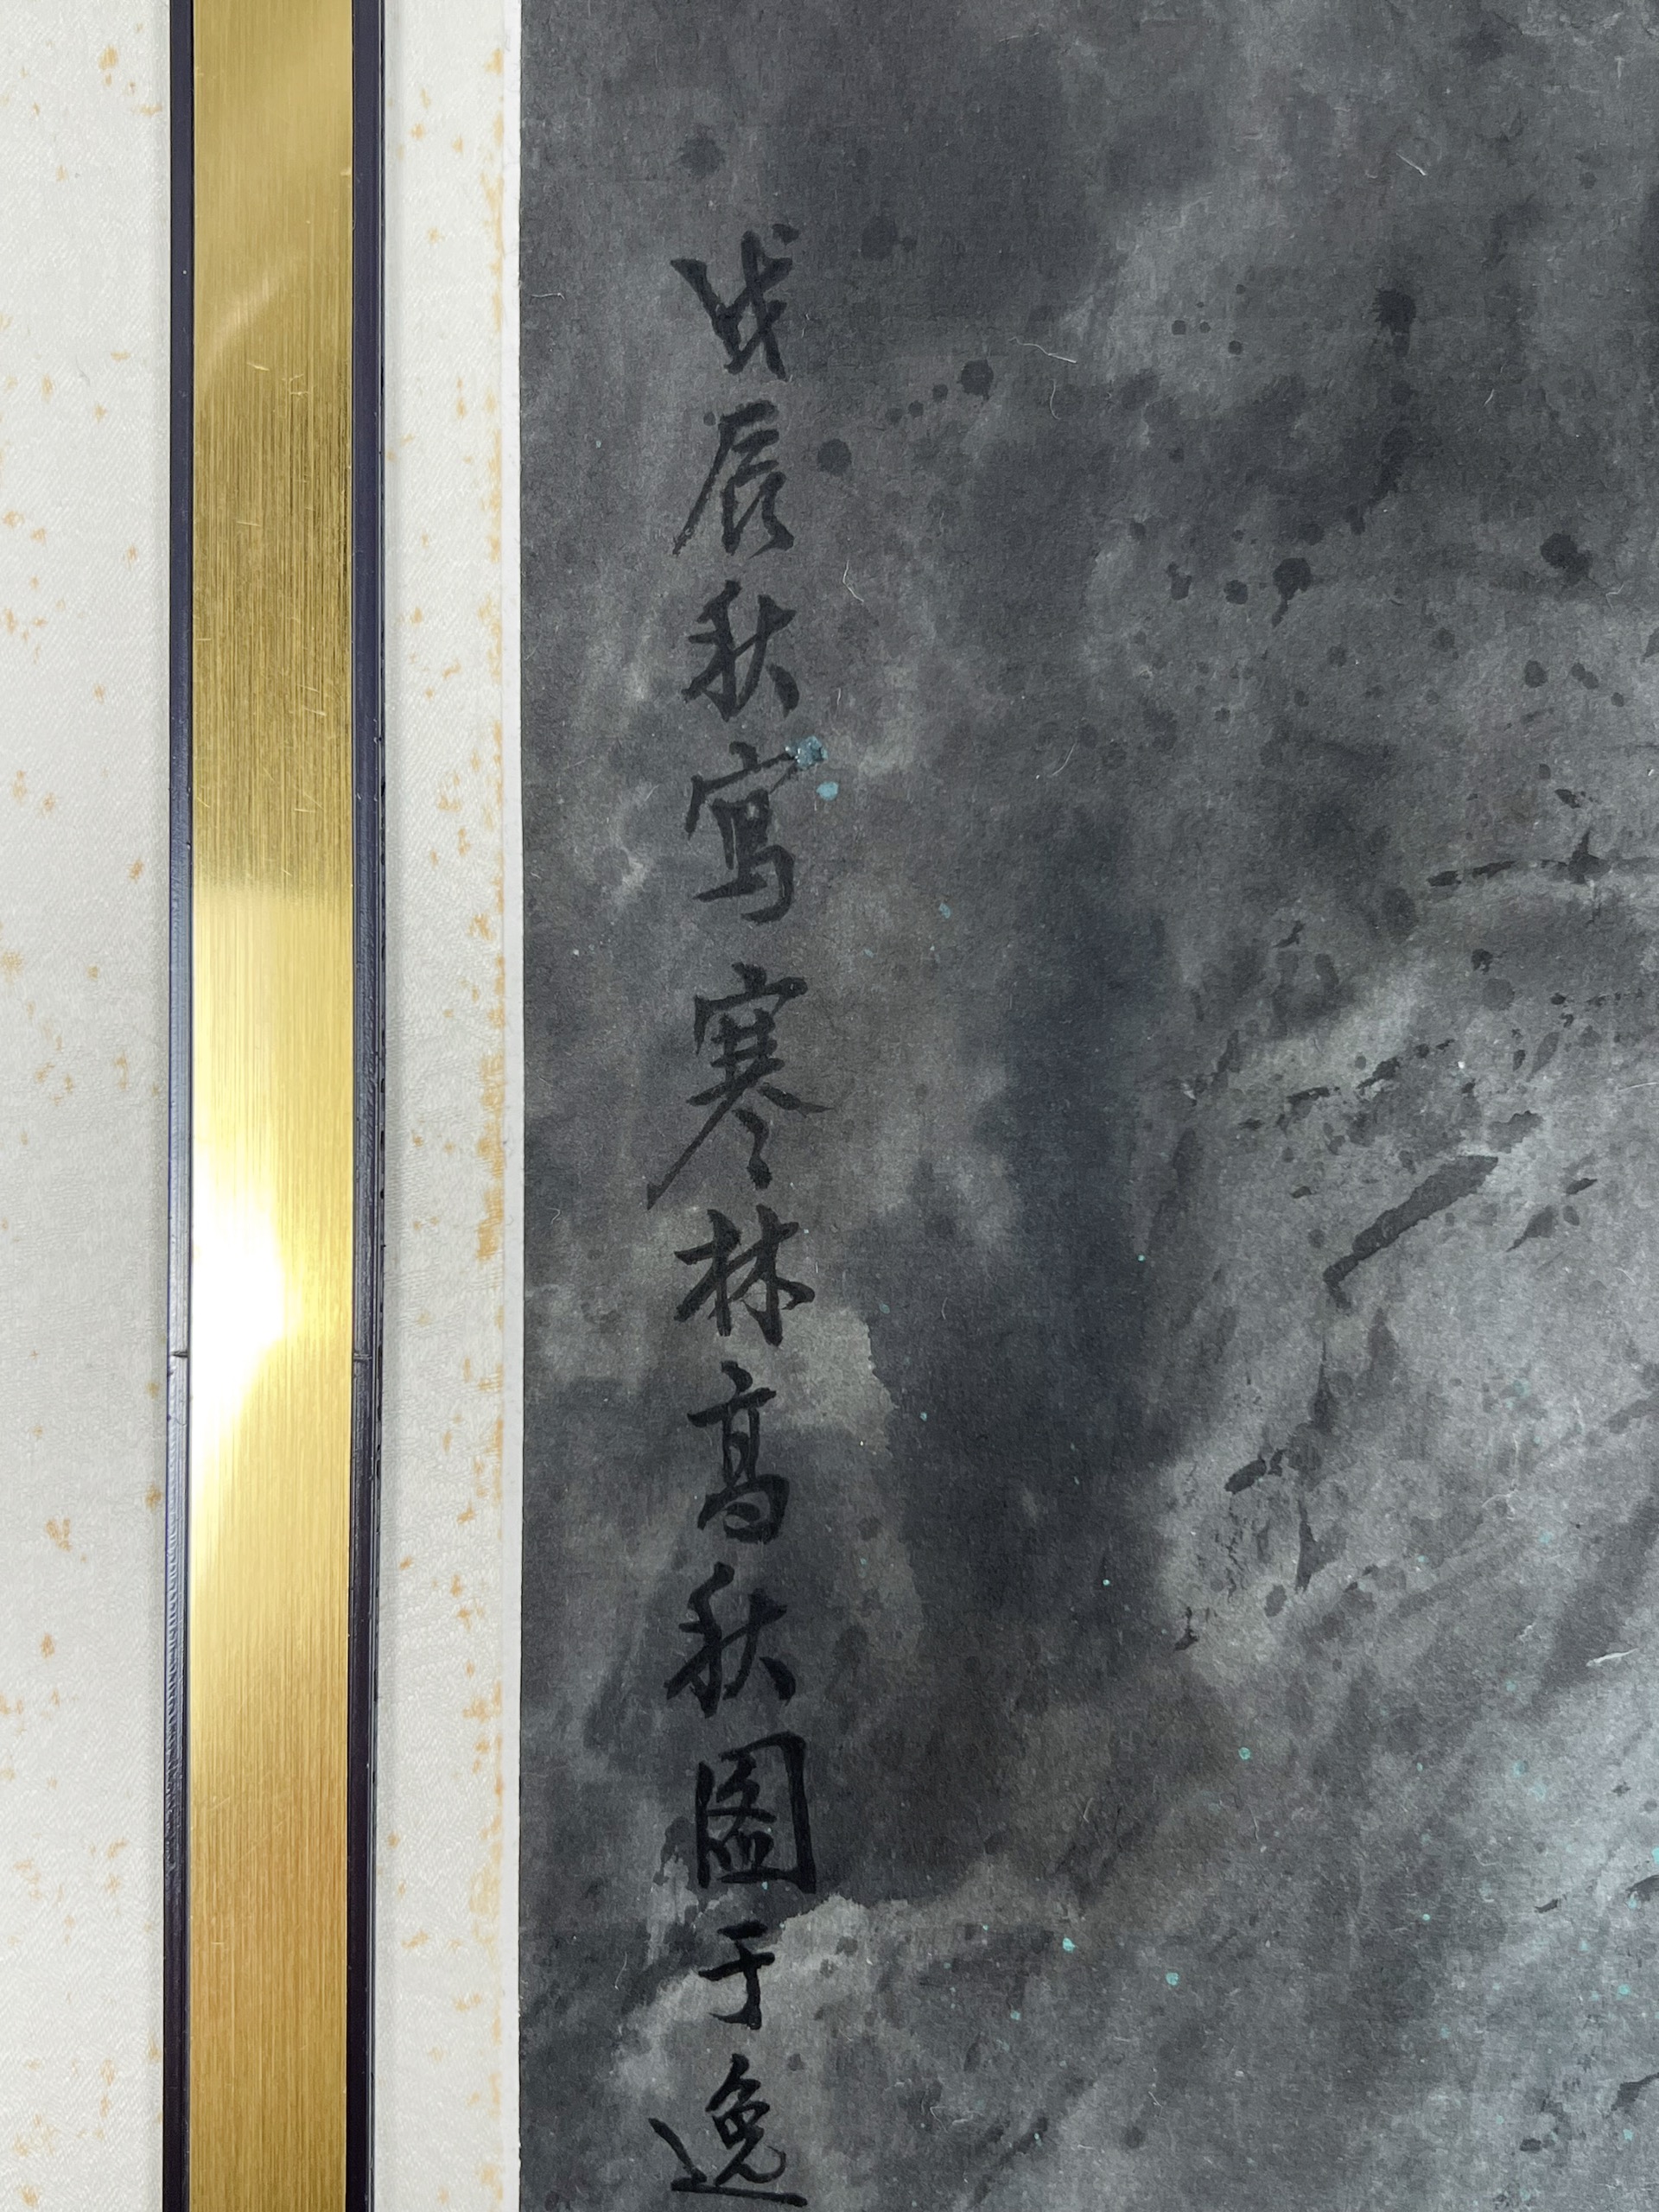 戊辰秋寫寒林高秋图于逸